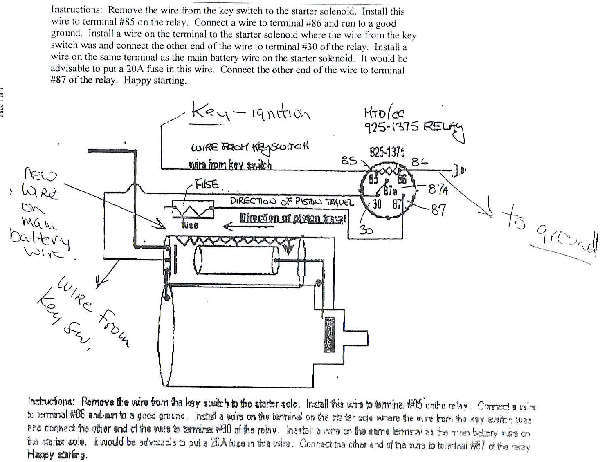 Instructions: Remove the wire from the key switch to the starter solenoid. Install this
wire to terminal #85 on the relay. Connect a wire to terminal #86 and run to a good
ground. Install a wire on the terminal to the starter solenoid where the wire from the key
switch was and connect the other end of the wire to terminal #30 of the relay. Install a
wire on the same terminal as the main battery wire on the starter solenoid. It would be
advisable to put a 20A fuse in this wire. Connect the other end of the wire to terminal
#87 of the relay. Happy starting.
Key - ignition
MTD/CC
925-1375 RELAY
WIRE FROM KEY SWITCH
wire from key switch
925-1375
85
86
85
86
87A
87A
30
87
87
30
FUSE
fuse
DIRECTION OF PISTON TRAVEL
Direction of piston travel
to ground
NEW
WIRE
on
main
battery
wire
WIRE From
Key Sw.
Instructions: Remove the wire from the key switch to the starter sole. Install this wire to termine #85 on the relay. Connect a wire
to terminal #86 and run to a good ground. Install a wire on the terminal on the starter sole where the wire from the key switch was
and connect the other end of the wire to terminal #30 of the relay. Install a wire on the same terminal as the main battery wire on
the starter sole. It would be advisable to put a 20A fuse in this wire. Connect the other end of the wire to terminal #87 of the relay
Happy starting.